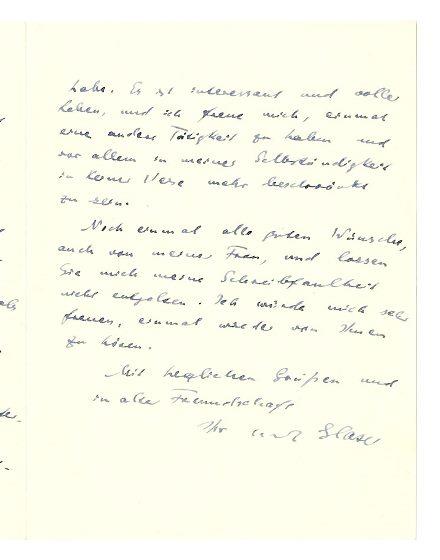 habe. Es ist interessant und voller
Leben, und ich freue mich, einmal
eine andere Tätigkeit zu haben und
vor allem in meiner Selbständigkeit
in keiner Weise mehr beschränkt
zu sein.
Noch einmal alle guten Wünsche,
auch von meiner Frau, und lassen
Sie mich meine Schreibfaulheit
nicht entgelten. Ich würde mich sehr
freuen, einmal wieder von Ihnen
zu hören.
Mit herzlichen Grüßen und
in alter Freundschaft
Ihr